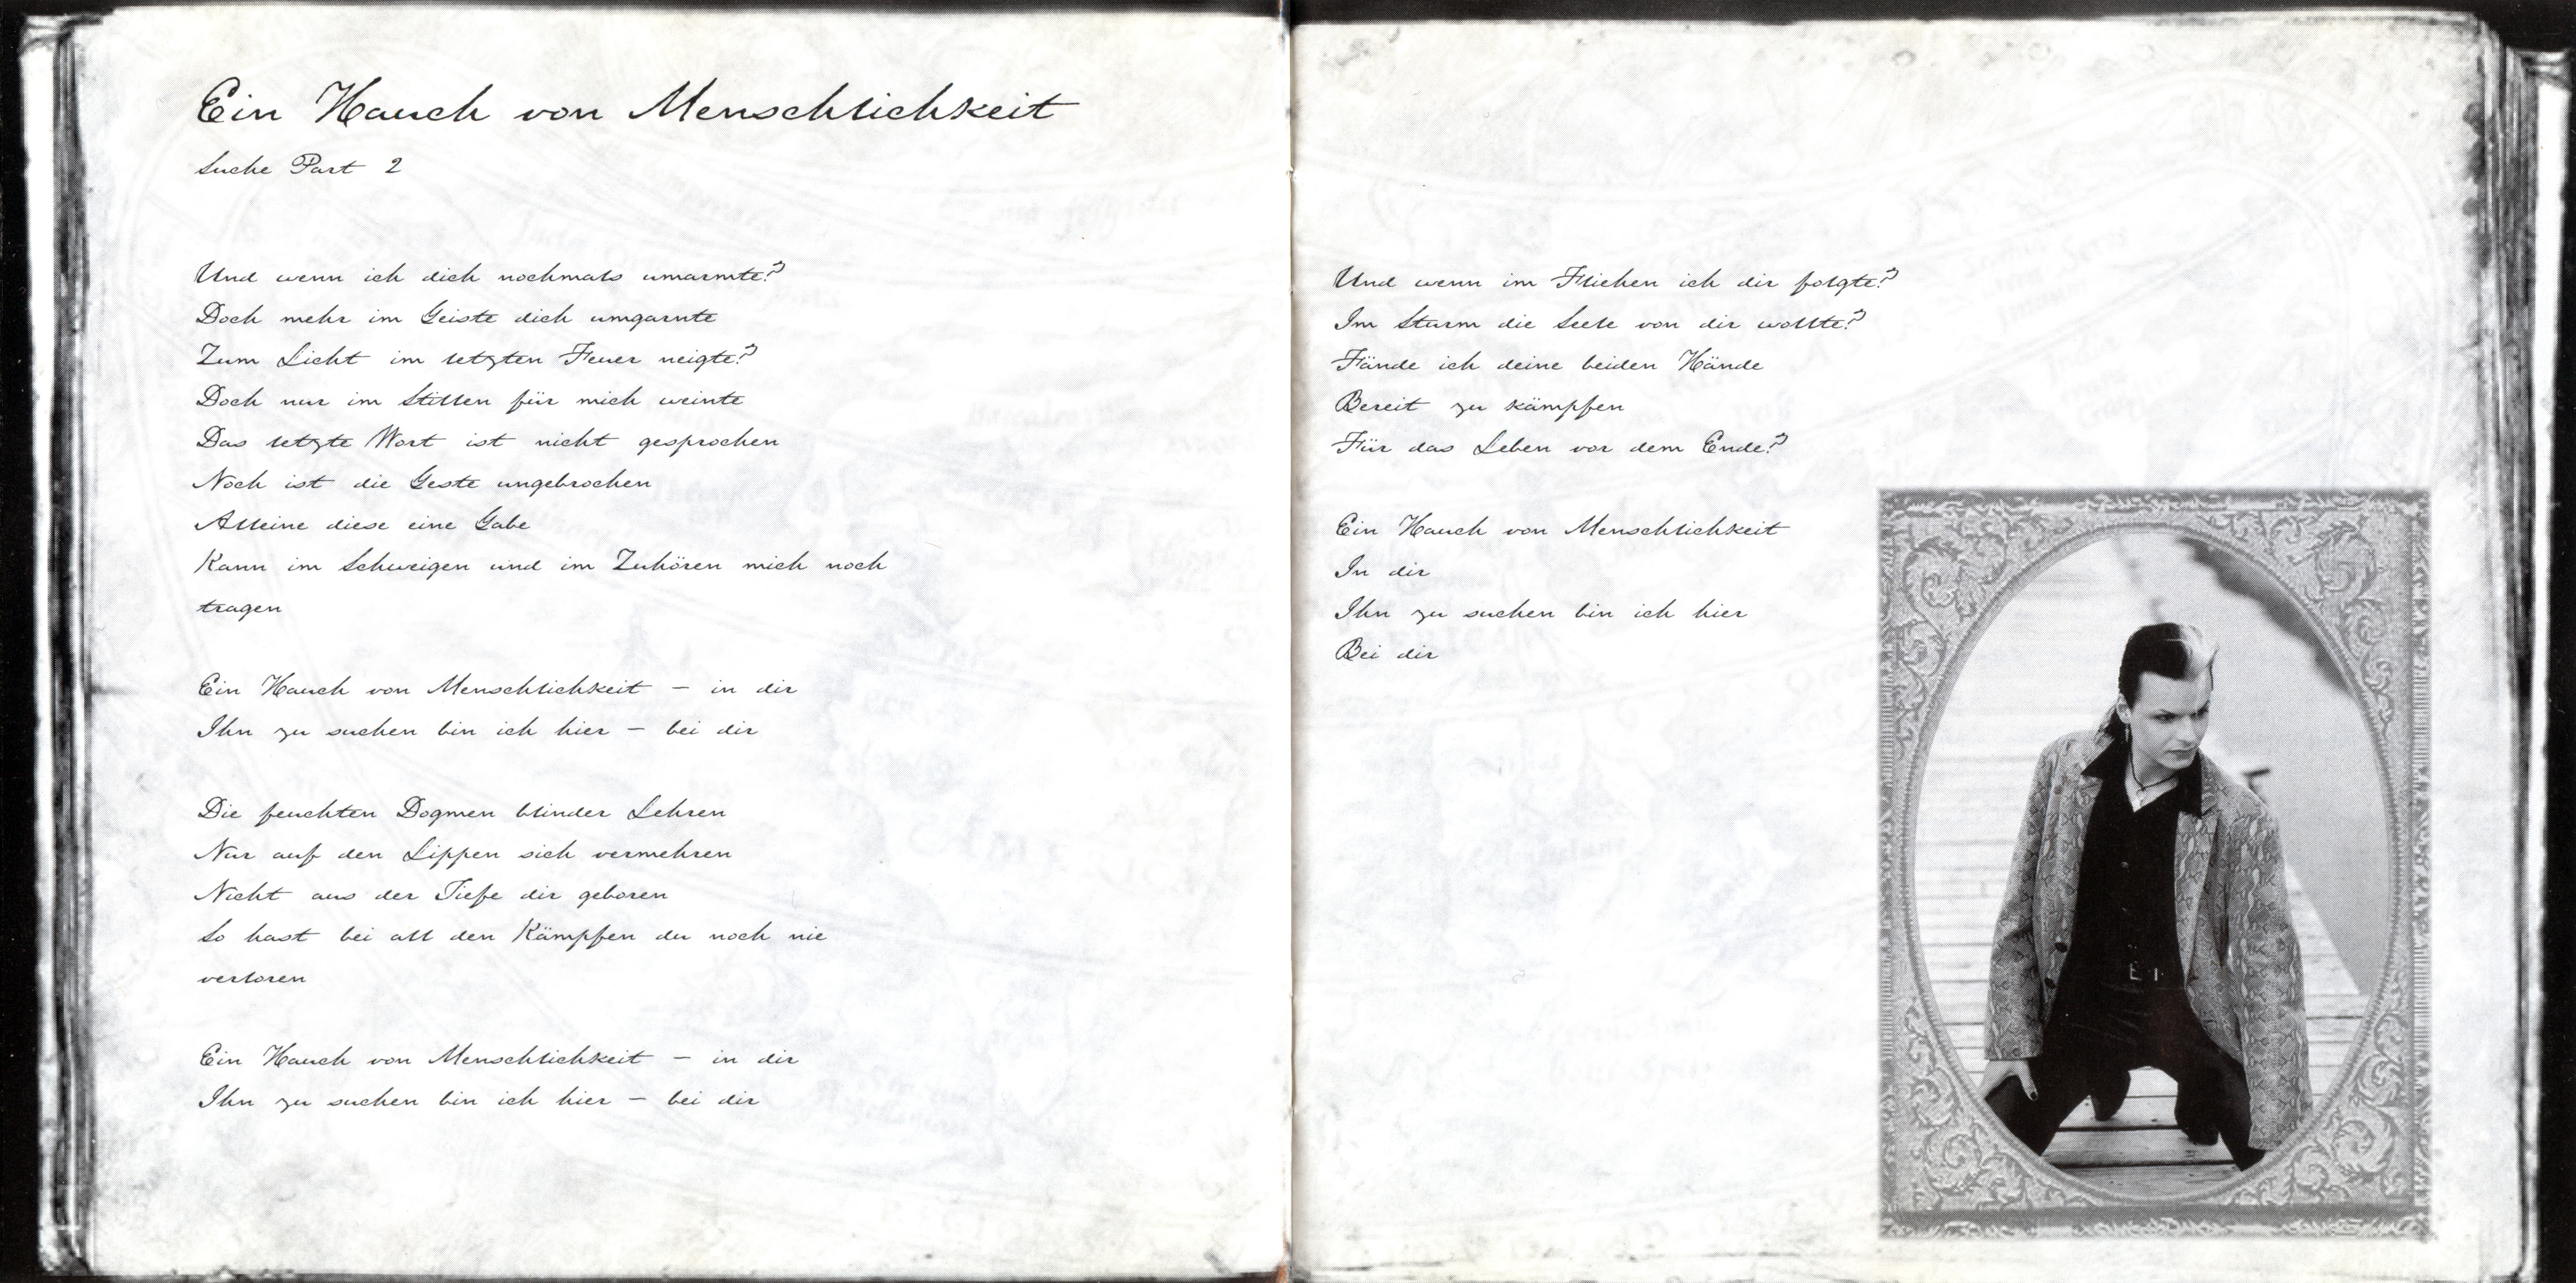 Ein Hauch von Menschlichkeit
Suche Part 2
Und wenn ich dich nochmals umarmte?
Doch mehr im Geiste dich umgarnte
Zum Licht im letzten Feuer neigte?
Doch nur im Stillen für mich weinte
Das letzte Wort ist nicht gesprochen
Noch ist die Geste ungebrochen
Alleine diese eine Gabe
Kann im Schweigen und im Zuhören mich noch
tragen
Ein Hauch von Menschlichkeit – in dir
Ihn zu suchen bin ich hier – bei dir
Die feuchten Dogmen blinder Lehren
Nur auf den Lippen sich vermehren
Nicht aus der Tiefe dir geboren
So hast bei all den Kämpfen du noch nie
verloren
Ein Hauch von Menschlichkeit – in dir
Ihn zu suchen bin ich hier – bei dir
Und wenn im Fliehen ich dir folgte?
Im Sturm die Seele von dir wollte?
Fände ich deine beiden Hände
Bereit zu kämpfen
Für das Leben vor dem Ende?
Ein Hauch von Menschlichkeit
In dir
Ihn zu suchen bin ich hier
Bei dir